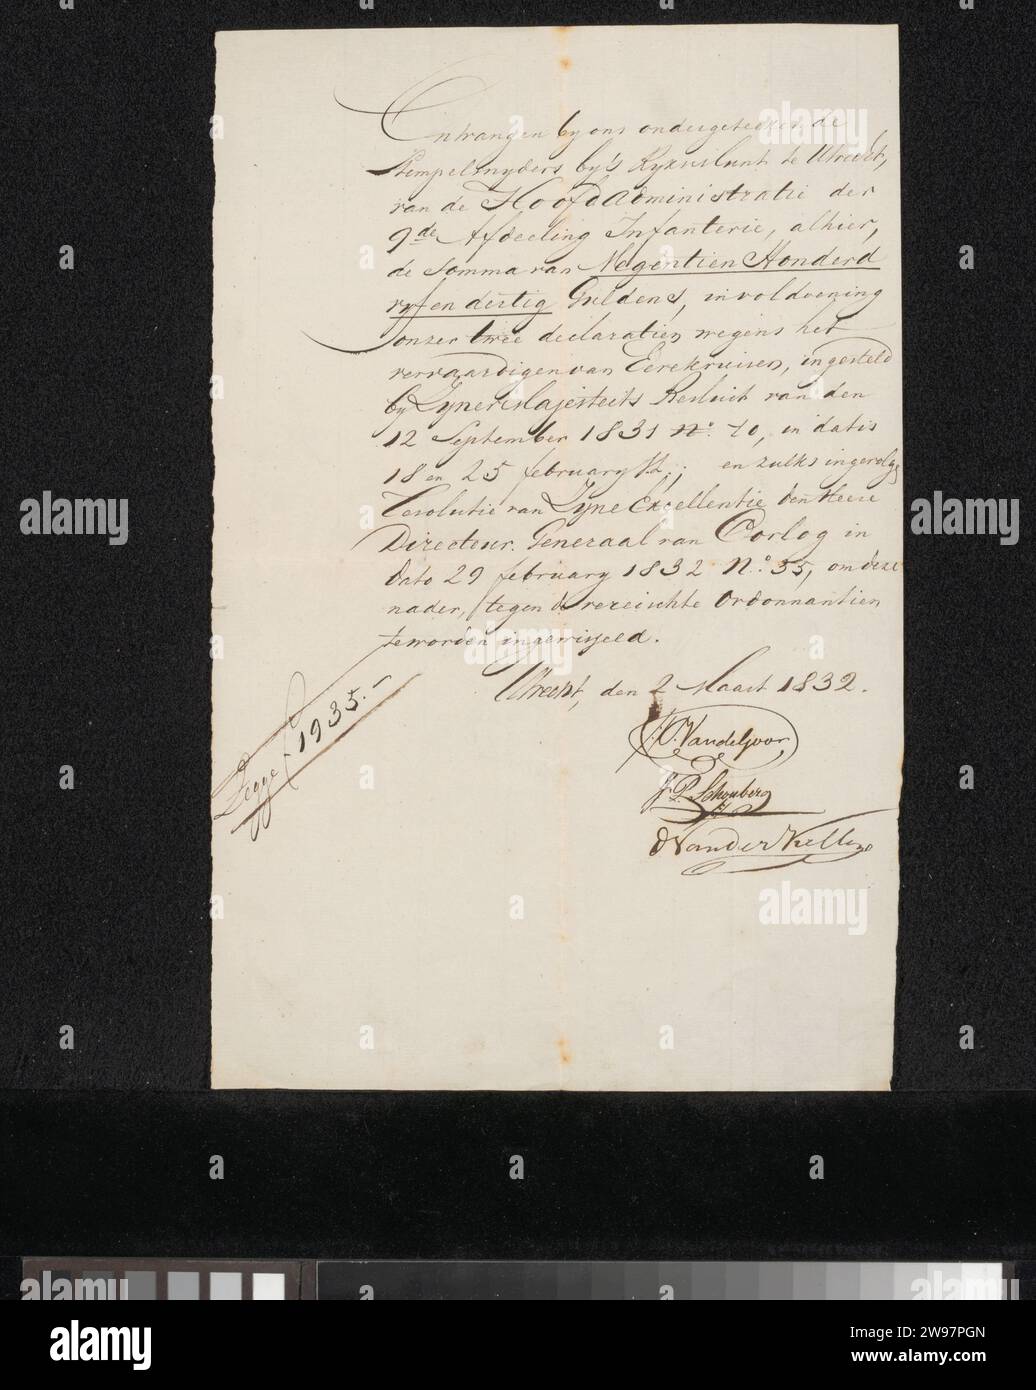 Ontvangen by ons ondergeteekende
Stempelsnyders by's Ryks Munt te Utrecht,
van de Hoofdadministratie der
9de Afdeeling Infanterie, alhier,
de Somma van Negentien Honderd
vyf en dertig Guldens, in voldoening
onzer twee declaratien wegens het
vervaardigen van Eerekruisen, ingesteld
by Zyner Majesteits Besluit van den
12 September 1831 No. 70, in datis
18 en 25 february ll.; en zulks ingevolge
resolutie van Zyne Excellentie den Heere
Directeur Generaal van Oorlog in
dato 29 february 1832 No. 55, om deze
nader, tegen de vereischte Ordonnantien
te worden ingewisseld.
Utrecht, den 2 Maart 1832.
Zegge f 1935.-
Vandelgoor,
J. P. Schouberg
D Van der Kellen
alamy
Image ID: 2W97PGN
www.alamy.com